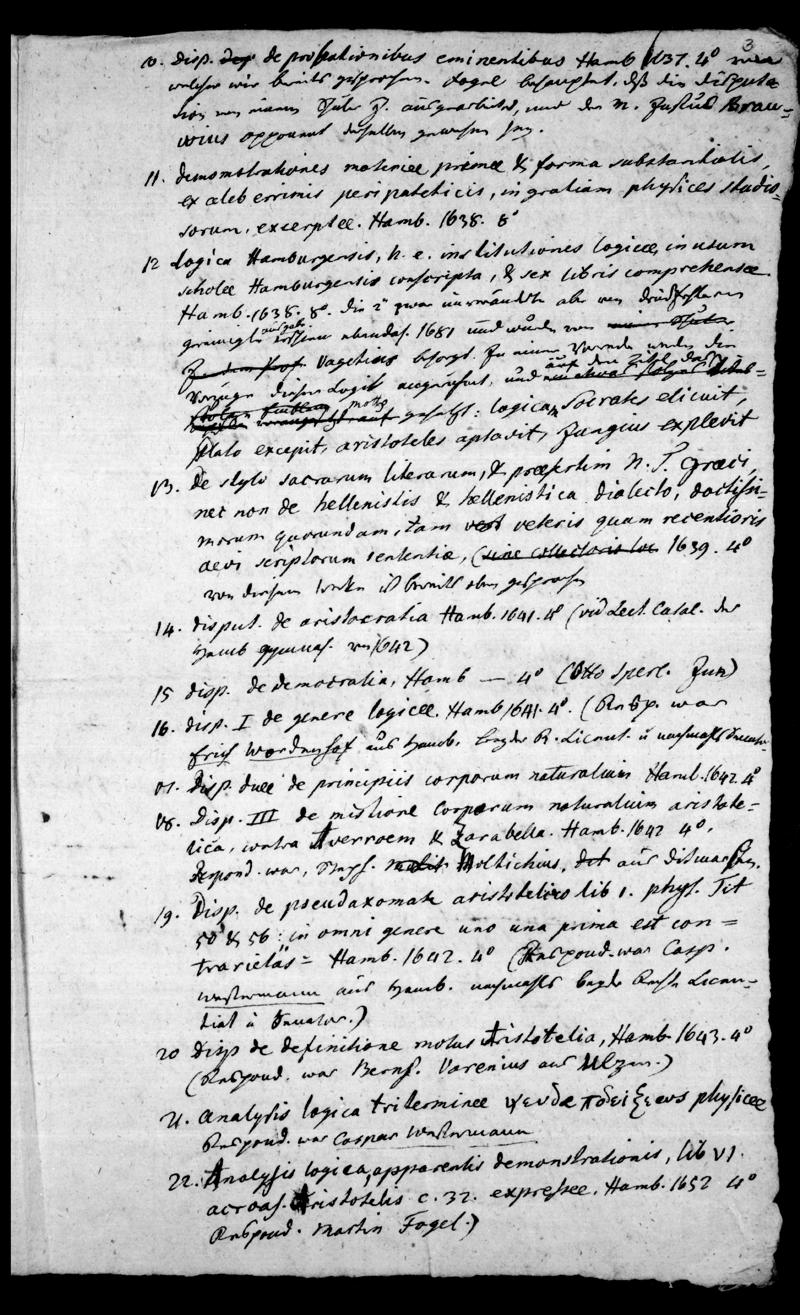 3
10. Disp. de probationibus eminentibus Hamb 1637. 4°
welcher wir bereits gesprochen. Vogel behauptet, daß die disputa
tion von einem Schüler J. ausgearbeitet, und der M. Justus Brau=
wius opponent derselben gewesen sey.
11. Demonstrationes materiæ primæ & forma substantialis,
ex celeberrimis peripateticis, in gratiam physices studio=
sorum, excerptæ. Hamb. 1638. 8°
12 Logica Hamburgensis, h. e. institutiones logicæ, in usum
scholæ Hamburgensis conscripta, & sex libris comprehensæ
Hamb. 1638. 8°. die 2te zwar unverändert aber von Druckfehlern
gereinigte ausgabe erschien ebendas. 1681 und wurde von
Vagetius besorgt. In einem Vorrede werden die
Vorzüge dieser Logik auseinander, und auf dem Titel das
motto gesetzt: logicam Socrates elicuit,
Plato excepit, aristoteles aptavit, Jungius explevit
13. De stylo sacrarum literarum, & præsertim N. T. græci,
nec non de hellenistis & hellenistica dialecto, doctissi=
morum quorundam, tam veteris quam recentioris
aevi scriptorum sententiæ, (sine collectoris loc 1639. 4°
von diesem Werke ist bereits oben gesprochen
14. Disput. de aristocratia Hamb. 1641. 4° (vid Lect. Catal. des
Hamb gymnas. von 1642)
15 disp. de democratia, Hamb — 4° (Otto Sperl. Jun)
16. disp. I de genere logicæ. Hamb 1641. 4°. (Resp. war
Erich Wordenhof aus Hamb. beyder R. Licent. u nachmals Senator
17. Disp. duæ de principiis corporum naturalium Hamb. 1642. 4°
18. Disp. III de mistione corporum naturalium aristote=
lica, contra Averroem & Zarabella. Hamb. 1642 4°.
Respond. war, Moltichius, aus Ditmarschen.
19. Disp. de pseudaxomate aristotelico lib 1. phys. Tit
50 & 56: in omni genere uno una prima est con=
trarietas= Hamb. 1642. 4° (Respond. war Casp.
Westermann aus Hamb. nachmals beyder Rechte Licen=
tiat u Senator.)
20 Disp de definitione motus Aristotelia, Hamb 1643. 4°
(Respond. war Bernh. Varenius aus Ulzen.)
21. Analysis logica triterminæ ψευδαποδείξεως physicæ
Respond. war Caspar Westermann
22. Analysis logica, apparentis demonstrationis, lib VI.
acroas. Aristotelis c. 32. expressæ. Hamb. 1652 4°
Respond. Martin Fogel.)